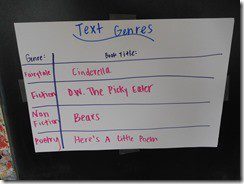 Text Genres
Genre: Book Title:
Fairytale Cinderella
Fiction D.W. The Picky Eater
Non Fiction Bears
Poetry Here's A Little Poem